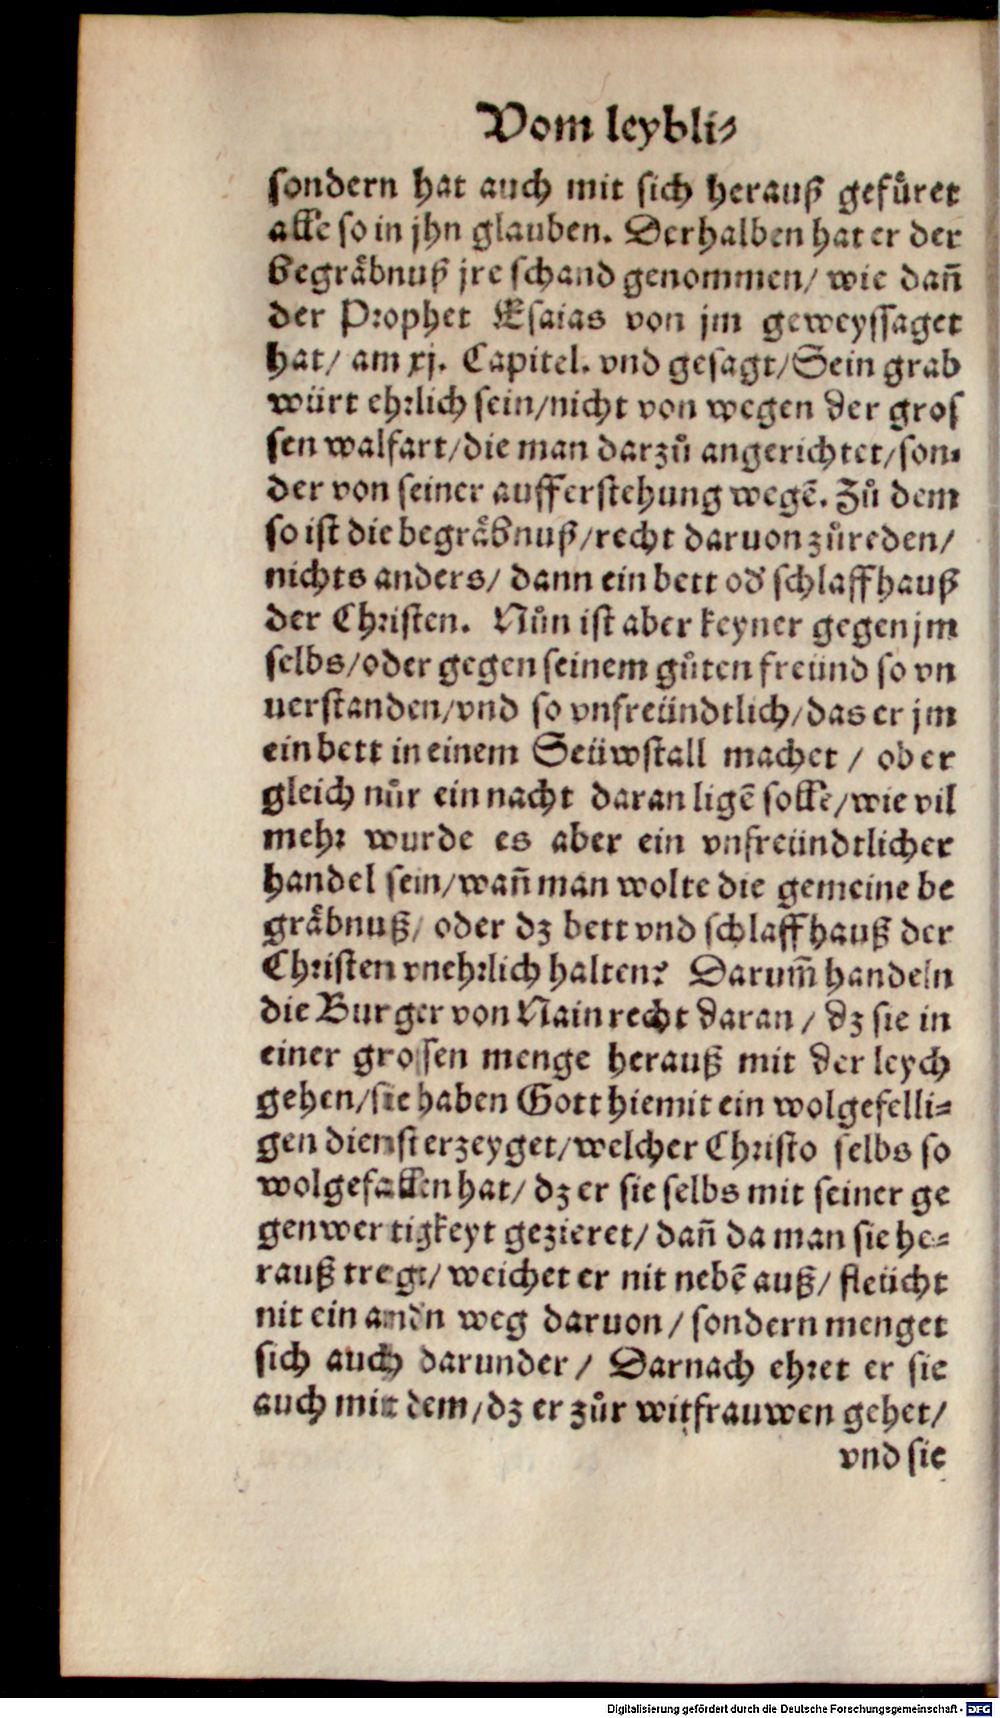 Vom leybli⸗
sondern hat auch mit sich herauß gefůret
alle so in jhn glauben. Derhalben hat er der
begräbnuß jre schand genommen/ wie dañ
der Prophet Esaias von jm geweyssaget
hat/ am xj. Capitel. vnd gesagt/Sein grab
würt ehrlich sein/nicht von wegen der gros
sen walfart/die man darzů angerichtet/son⸗
der von seiner aufferstehung wegẽ. Zů dem
so ist die begräbnuß/recht daruon zůreden/
nichts anders/ dann ein bett od̕ schlaffhauß
der Christen. Nůn ist aber keyner gegen jm
selbs/oder gegen seinem gůten freünd so vn
uerstanden/vnd so vnfreündtlich/das er jm
ein bett in einem Seüwstall machet / ob er
gleich nůr ein nacht daran ligẽ solle/wie vil
mehr wurde es aber ein vnfreündtlicher
handel sein/wañ man wolte die gemeine be
gräbnuß/ oder dz bett vnd schlaffhauß der
Christen vnehrlich halten? Darum̃ handeln
die Burger von Nain recht daran / dz sie in
einer grossen menge herauß mit der leych
gehen/sie haben Gott hiemit ein wolgefelli⸗
gen dienst erzeyget/welcher Christo selbs so
wolgefallen hat/ dz er sie selbs mit seiner ge
genwertigkeyt gezieret/ dañ da man sie he⸗
rauß tregt/ weichet er nit nebẽ auß/ fleücht
nit ein andn weg daruon / sondern menget
sich auch darunder / Darnach ehret er sie
auch mit dem/dz er zůr witfrauwen gehet/
vnd sie
Digitalisierung gefördert durch die Deutsche Forschungsgemeinschaft - DFG